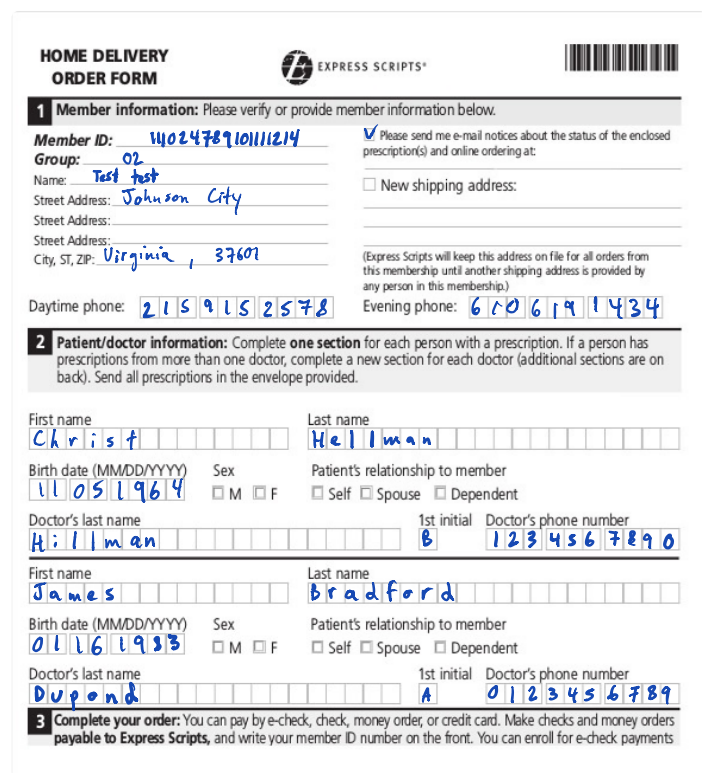 HOME DELIVERY
ORDER FORM
EXPRESS SCRIPTS®
1 Member information: Please verify or provide member information below.
Member ID: 11102478910111214
Group: 02
Name: Test test
Street Address: Johnson City
Street Address:
Street Address:
City, ST, ZIP: Virginia, 37601
Please send me e-mail notices about the status of the enclosed
prescription(s) and online ordering at:
New shipping address:
(Express Scripts will keep this address on file for all orders from
this membership until another shipping address is provided by
any person in this membership.)
Daytime phone: 2159152578 Evening phone: 6106191434
2 Patient/doctor information: Complete one section for each person with a prescription. If a person has
prescriptions from more than one doctor, complete a new section for each doctor (additional sections are on
back). Send all prescriptions in the envelope provided.
First name Last name
Christ Hellman
Birth date (MM/DD/YYYY) Sex Patient's relationship to member
11051964 M F Self Spouse Dependent
Doctor's last name 1st initial Doctor's phone number
Hillman B 1234567890
First name Last name
James Bradford
Birth date (MM/DD/YYYY) Sex Patient's relationship to member
01161983 M F Self Spouse Dependent
Doctor's last name 1st initial Doctor's phone number
Dupond A 0123456789
3 Complete your order: You can pay by e-check, check, money order, or credit card. Make checks and money orders
payable to Express Scripts, and write your member ID number on the front. You can enroll for e-check payments